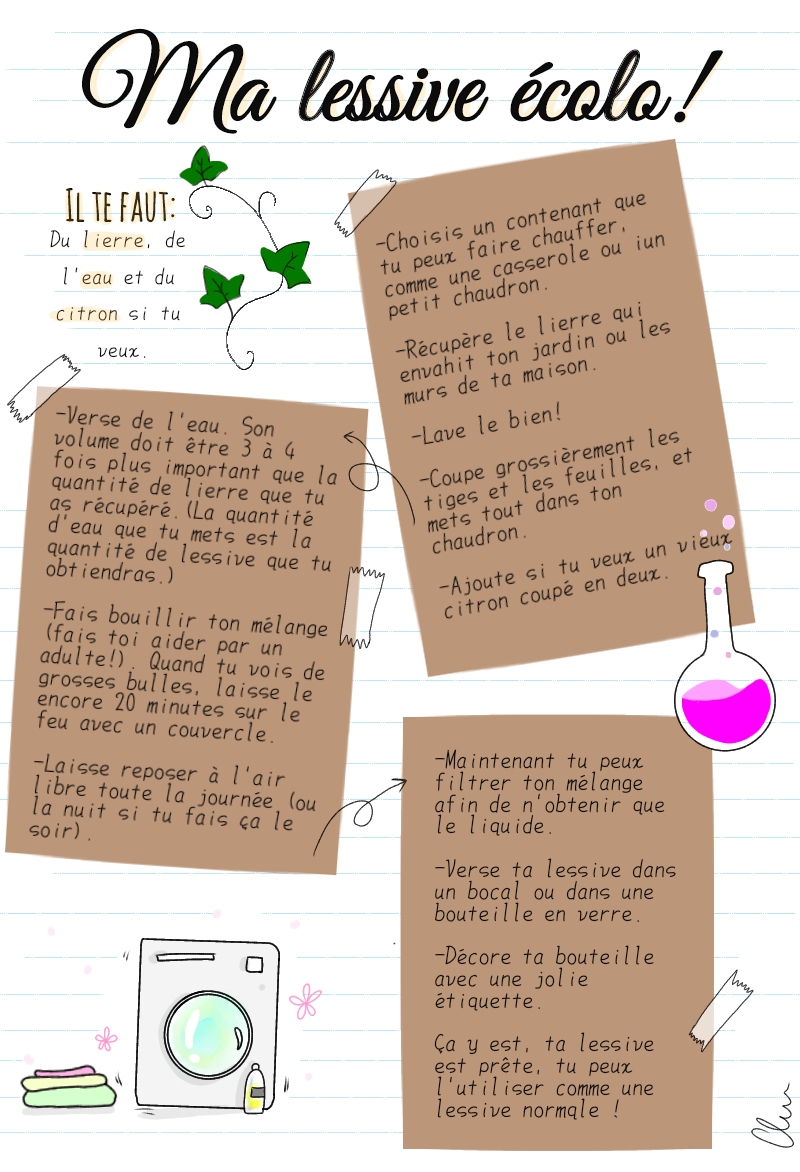 Ma lessive écolo!
IL TE FAUT:
Du lierre, de
l'eau et du
citron si tu
veux.
-Choisis un contenant que
tu peux faire chauffer,
comme une casserole ou iun
petit chaudron.
-Récupère le lierre qui
envahit ton jardin ou les
murs de ta maison.
-Lave le bien!
-Coupe grossièrement les
tiges et les feuilles, et
mets tout dans ton
chaudron.
-Ajoute si tu veux un vieux
citron coupé en deux.
-Verse de l'eau. Son
volume doit être 3 à 4
fois plus important que la
quantité de lierre que tu
as récupéré.(La quantité
d'eau que tu mets est la
quantité de lessive que tu
obtiendras.)
-Fais bouillir ton mélange
(fais toi aider par un
adulte!). Quand tu vois de
grosses bulles, laisse le
encore 20 minutes sur le
feu avec un couvercle.
-Laisse reposer à l'air
libre toute la journée (ou
la nuit si tu fais ça le
soir).
-Maintenant tu peux
filtrer ton mélange
afin de n'obtenir que
le liquide.
-Verse ta lessive dans
un bocal ou dans une
bouteille en verre.
-Décore ta bouteille
avec une jolie
étiquette.
Ça y est, ta lessive
est prête, tu peux
l'utiliser comme une
lessive normqle !